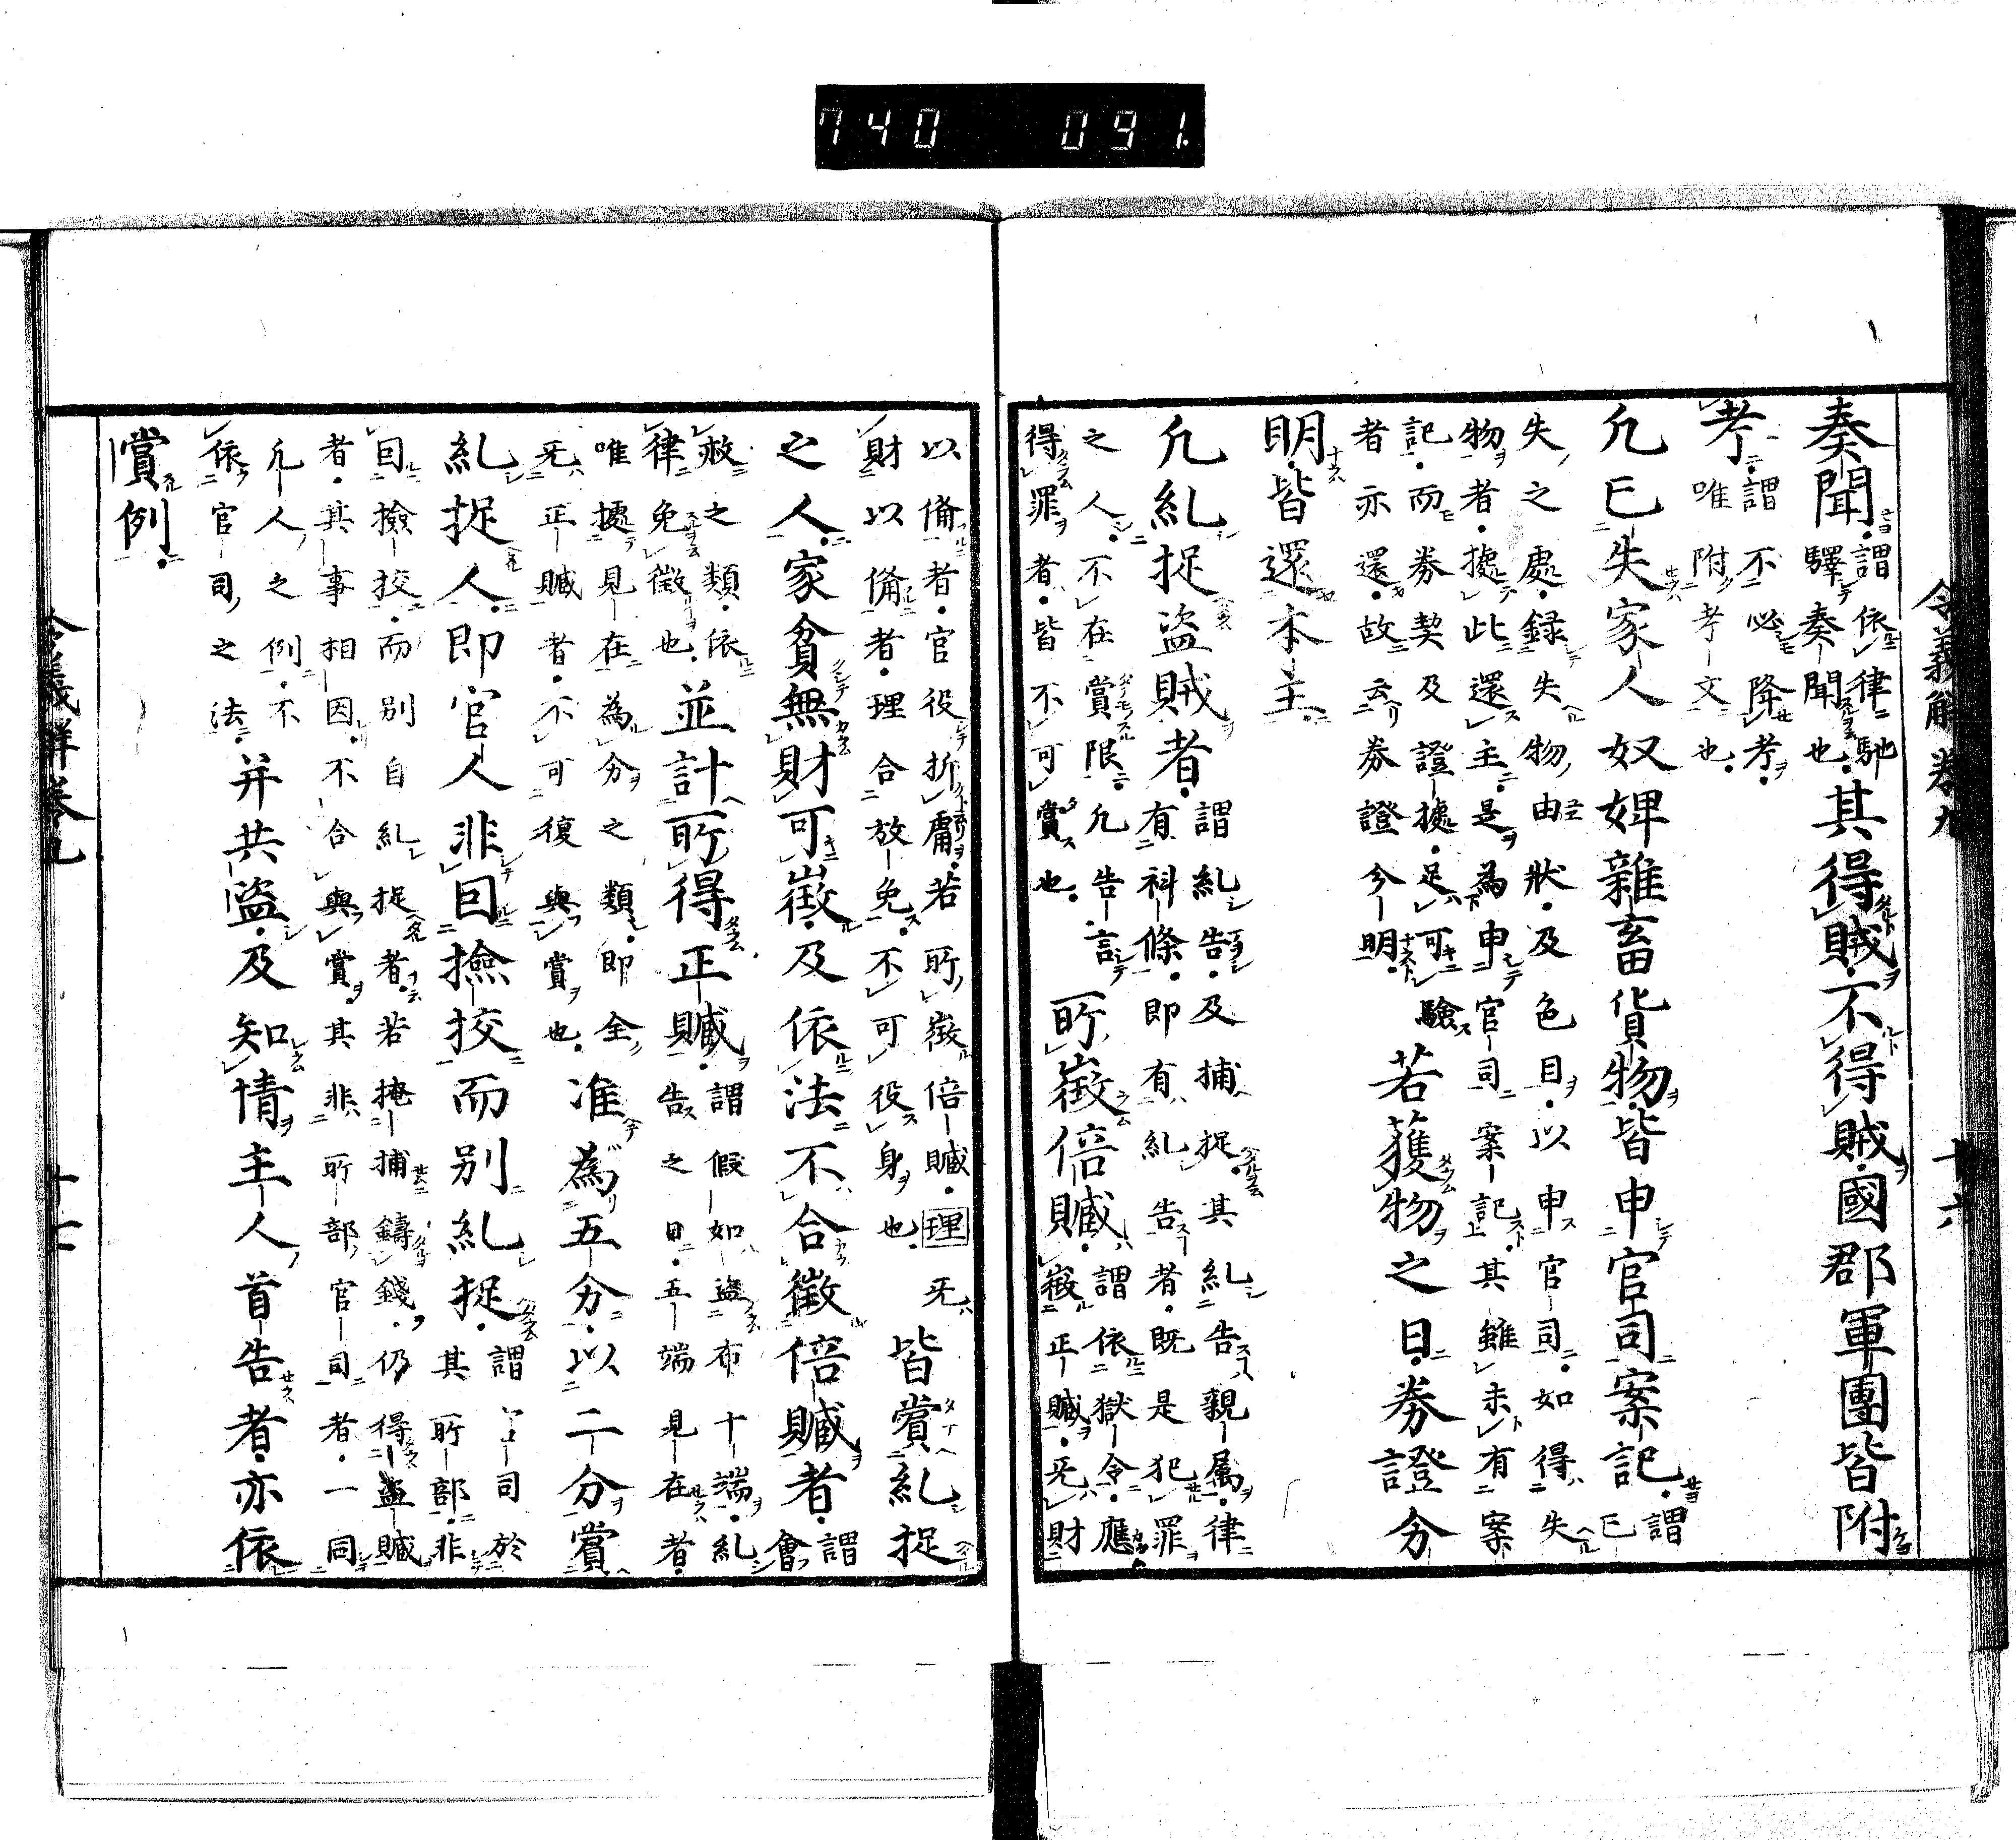 740 091.
令義解卷九 十六
奏聞謂依律馳
驛奏聞也其得賊不得賊國郡軍團皆附
考謂不必降考
唯附考文也
凢亡失家人奴婢雜畜貨物皆申官司案記謂亡
失之處録失物由狀及色目以申官司如得失
物者據此還主是為申官司案記其雖未有案
記而券契及證據足可驗
者亦還故云券證今明若獲物之日券證分
明皆還本主
凢糺捉盜賊者謂糺告及捕捉其糺告親属律
有科條即有糺告者既是犯罪
之人不在賞限凢告言所徴倍贓謂依獄令應
得罪者皆不可賞也徴正贓无財
以備者官役折庸若所徴倍贓理无
財以備者理合放免不可役身也皆賞糺捉
之人家貧無財可徴及依法不合徴倍贓者謂
會
赦之類依
律免徴也並計所得正贓謂假如盜布十端糺
告之日五端見在者
唯據見在為分之類即全
无正贓者不可復與賞也准為五分以二分賞
糺捉人即官人非因撿挍而别糺捉謂官司於
其所部非
因撿挍而别自糺捉者若掩捕鑄錢仍得盜贓
者其事相因不合與賞其非所部官司者一同
凢人之例不
依官司之法并共盜及知情主人首告者亦依
賞例
令義解卷九 十七